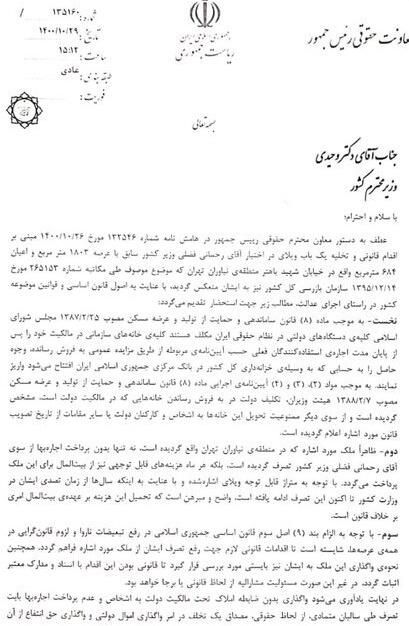 معاونت حقوقی رئیس جمهور
جمهوری اسلامی ایران
ریاست جمهوری
شماره: ۱۳۵۱۶۰
تاریخ: ۱۴۰۰/۱۰/۲۹
ساعت: ۱۵:۱۲
طبقه بندی: عادی
فوریت:
بسمه تعالی
جناب آقای دکتر وحیدی
وزیر محترم کشور
با سلام و احترام؛
عطف به دستور معاون محترم حقوقی رییس جمهور در هامش نامه شماره ۱۳۲۵۴۶ مورخ ۱۴۰۰/۱۰/۲۶ مبنی بر
اقدام قانونی و تخلیه یک باب ویلای در اختیار آقای رحمانی فضلی وزیر کشور سابق با عرصه ۱۸۰۳ متر مربع و اعیان
۶۸۴ مترمربع واقع در خیابان شهید باهنر منطقه‌ی نیاوران تهران که موضوع موصوف طی مکاتبه شماره ۲۶۵۱۵۳ مورخ
۱۳۹۵/۱۲/۱۴ سازمان بازرسی کل کشور نیز به ایشان منعکس گردید، با عنایت به اصول قانون اساسی و قوانین موضوعه
کشور در راستای اجرای عدالت، مطالب زیر جهت استحضار تقدیم می‌گردد:
نخست- به موجب ماده (۸) قانون ساماندهی و حمایت از تولید و عرضه مسکن مصوب ۱۳۸۷/۲/۲۵ مجلس شورای
اسلامی کلیه‌ی دستگاه‌های دولتی در نظام حقوقی ایران مکلف هستند کلیه‌ی خانه‌های سازمانی در مالکیت خود را پس
از پایان مدت اجاره‌ی استفاده‌کنندگان فعلی حسب آیین‌نامه‌ی مربوطه از طریق مزایده عمومی به فروش رسانده، وجوه
حاصل را به حسابی که به وسیله‌ی خزانه‌داری کل کشور در بانک مرکزی جمهوری اسلامی ایران افتتاح می‌شود واریز
نمایند. به موجب مواد (۲)، (۳) و (۴) آیین‌نامه‌ی اجرایی ماده (۸) قانون ساماندهی و حمایت از تولید و عرضه مسکن
مصوب ۱۳۸۸/۲/۷ هیئت وزیران، تکلیف دولت در به فروش رساندن خانه‌هایی که در مالکیت دولت است، مشخص
گردیده است و از سوی دیگر ممنوعیت تحویل این خانه‌ها به اشخاص و کارکنان دولت یا سایر مقامات از تاریخ تصویب
قانون مورد اشاره اعلام گردیده است.
دوم- ظاهراً ملک مورد اشاره که در منطقه‌ی نیاوران تهران واقع گردیده است، نه تنها بدون پرداخت اجاره‌بها از سوی آقای
رحمانی فضلی وزیر کشور تصرف گردیده است، بلکه هر ماه هزینه‌های قابل توجهی نیز از بیت‌المال برای این ملک
پرداخت می‌گردد. با توجه به متراژ قابل توجه ویلای اشاره‌شده و با عنایت به اینکه سال‌ها از زمان تصدی ایشان در
وزارت کشور تا اکنون این تصرف ادامه یافته است، واضح و مبرهن است که تحمیل این هزینه بر عهده‌ی بیت‌المال امری
بر خلاف قانون است.
سوم- با توجه به الزام بند (۹) اصل سوم قانون اساسی جمهوری اسلامی در رفع تبعیضات ناروا و لزوم قانون‌گرایی در
همه‌ی عرصه‌ها، شایسته است تا اقدامات قانونی لازم جهت رفع تصرف ایشان از ملک مورد اشاره فراهم گردد. همچنین
نحوه‌ی واگذاری این ملک به ایشان نیز بایستی مورد بررسی قرار گیرد تا قانونی بودن این اقدام با اسناد و مدارک معتبر
اثبات گردد، در غیر این صورت مسئولیت مشارالیه از لحاظ قانونی پا برجا خواهد بود.
در نهایت یادآوری می‌شود واگذاری بدون ضابطه املاک تحت مالکیت دولت به اشخاص و عدم پرداخت اجاره‌بها بابت
تصرف طی سالیان متمادی، از لحاظ حقوقی، مصداق یک تخلف در امر واگذاری اموال دولتی و واگذاری حق انتفاع از آن